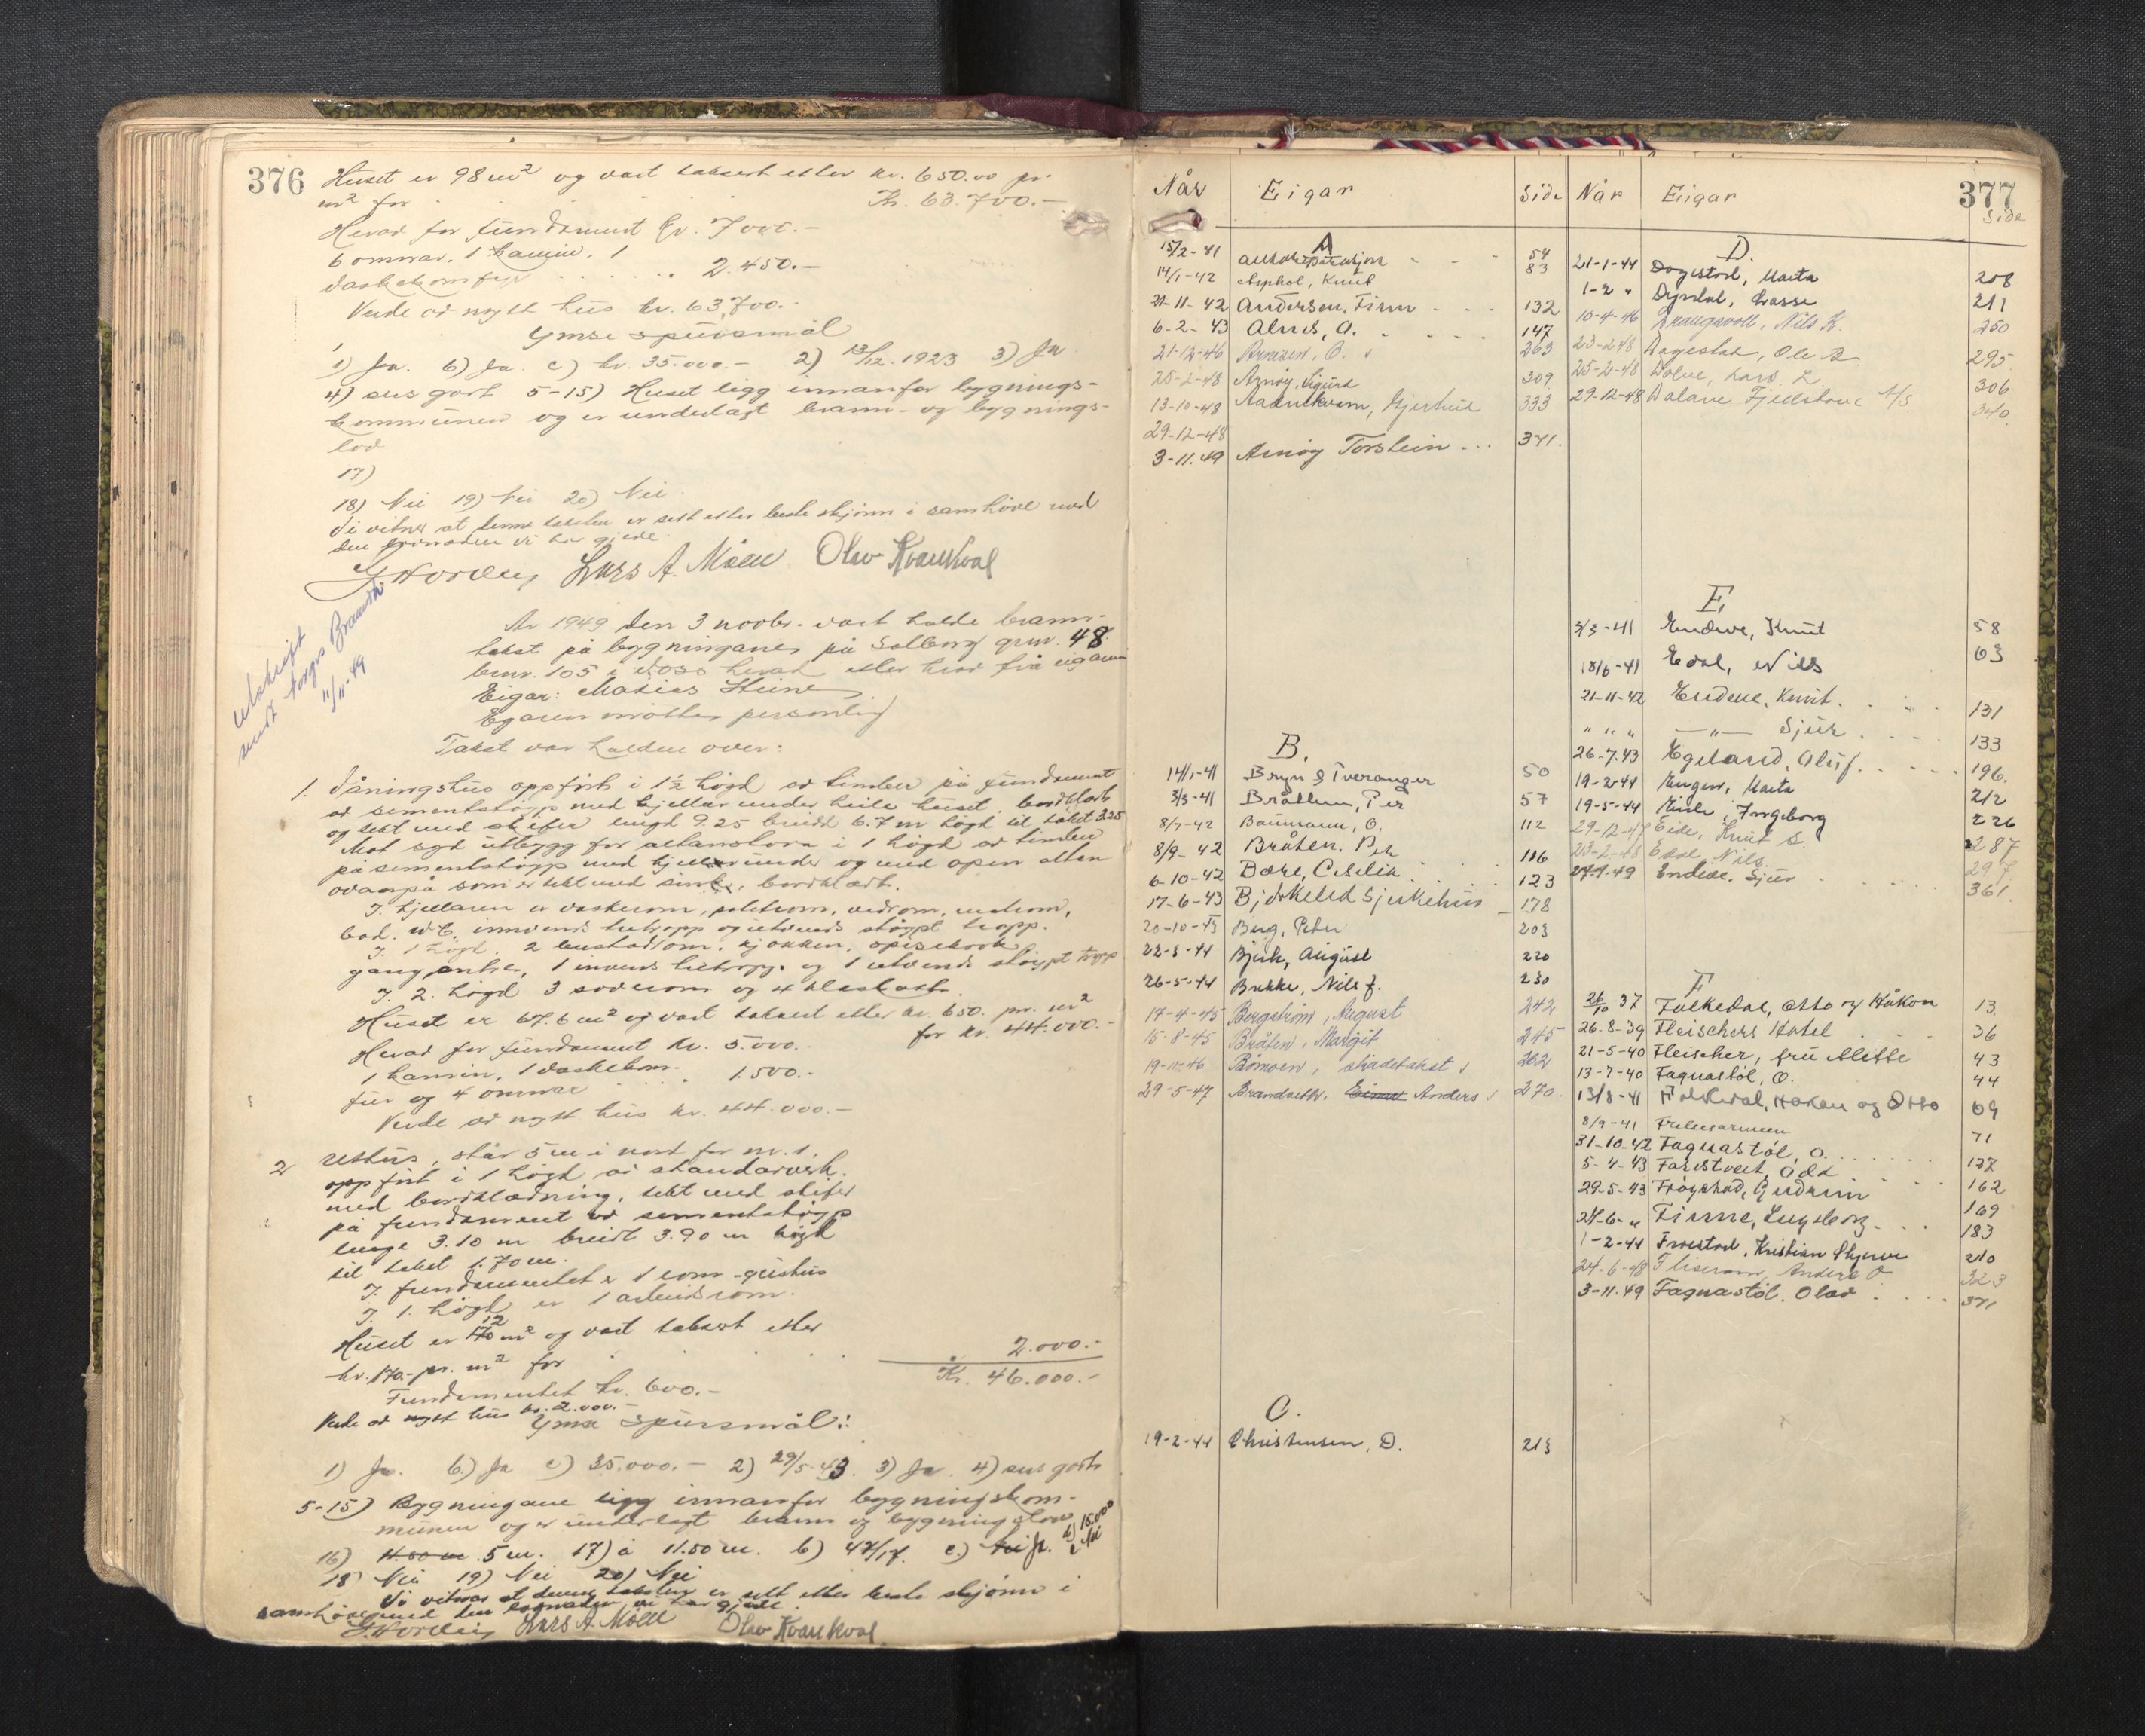 376
Huset er 98 m² og vart taksert etter kr. 650.00 pr.
m² for Kr. 63.700.-
Herav for fundament kr. 7000.-
6 omnar, 1 kamin, 1
vaskekomfyr 2.450.-
Verde av nytt hus kr. 63.700.-
Ymse spursmål
1) Ja. b) Ja. c) kr. 35.000.- 2) 13/12. 1923 3) Ja
4) sus godt 5-15) Huset ligg innanfor bygnings-
kommunen og er underlagt brann- og bygnings-
lov
17)
18) Nei 19) Nei 20) Nei
Vi vitnar at denne taksten er sett etter beste skjønn i samhøve med
den
Lars A. Møen Olav Kvarekval
Utskrift
sendt Norges Brannk
11/11-49
År 1949 den 3 novbr. vart halde brann-
takst på bygningane på Solberg grnr. 48
brnr. 105 i Voss herad etter krav frå eigaren
Eigar: Matias
Egaren møtte personleg
Takst var halden over:
1. Våningshus oppført i 1½ høgd av timber på fundament
av sementstøyp med kjellar under heile huset, bordklædt
og tekt med skifer lengd 9.25 breidd 6.7 m høgd til taket 3.25
Mot syd utbygg for altanstova i 1 høgd av timber
på sementstøyp med kjellar under og med open altan
ovanpå som er tekt med sink, bordklædt.
I. kjellaren er vaskerom, potetrom, vedrom, matrom,
bad. WC. innvendes tretropp og utvendes støypt tropp.
I. 1 høgd. 2 bustadrom, kjøkken, spisekrok
gang, entre, 1 invends tretropp og 1 utvends støypt tropp
I. 2. høgd 3 soverom og 4 kleskott.
Huset er 67.6 m² og vart taksert etter kr. 650. pr. m²
for kr. 44.000.-
Herav for fundament kr. 5.000.-
1 kamin, 1 vaskekom-
fur og 4 omnar 1.500.-
Verde av nytt hus kr. 44.000.-
2 uthus, står 5 m i nord for nr. 1,
oppført i 1 høgd av standarverk.
med bordklædning, tekt med skifer
på fundament av sementstøyp
lengd 3.10 m breidd 3.90 m høgd
til taket 1.70 m.
I. fundamentet er 1 rom -
I. 1. høgd er 1 arbeidsrom.
Huset er 12 m² og vart taksert etter
kr. 170.- pr. m² for 2.000.-
Kr. 46.000.-
Fundamentet kr. 600.-
Verde av nytt hus kr. 2.000.-
Ymse spursmål:
1) Ja. b) Ja c) 35.000.- 2) 29/5-43. 3) Ja. 4) sus godt
5-15) Bygningane ligg innanfor bygningskom-
munen og er underlagt brann og bygningslov
16) 11.50 m 5 m. 17) a 11.50 m. b) 47/17. c.)
18) Nei 19) Nei 20) Nei
Vi vitnar at denne taksten er sett etter beste skjønn i
samhøve med den
Lars A. Møen Olav Kvarekval
377
Når Eigar Side Når Eigar Side
A
15/2-41 54
14/1-42 Asphol, Knut 83
21-11-42 Andersen, Finn 132
6-2-43 Alnes, O. 147
21-12-46 Arnesen, O. 263
25-2-48 Arnøy, Sigurd 309
13-10-48 333
29-12-48
3-11.49 Arnøy Torstein 341.
B.
14/1-41 Bryn & Tveranger 50
3/3-41 Bråttun, Per 57
8/7-42 Baumann, O. 112
8/9-42 Bråten, Per 116
6-10-42 Bore, Cecilia 123
17-6-43 Bjørkelid Sjukehus 178
20-10-43 Berg, Peter 203
22-3-44 Bjørk, August 220
26-5-44 Bakke, Nils J. 230
17-4-45 Bergstrøm, August 242
15-8-45 Bråten, Margit 245
19-11-46 Rømoen, skadetakst 262
29-5-47 Brandseth, Einar Anders 270
C.
19-2-44 Christensen, D. 213
D.
21-1-44 Dagestad, Marta 208
1-2 " Dyrdal, Lasse 211
10-4-46 Draugsvoll, Nils K. 250
23-2-48 Dagestad, Ole B 295
25-2-48 Dolve, Lars L 306
29-12-48 Dalane Fjellstove A/S 340
E.
3/3-41 Endeve, Knut 58
18/6-41 Edal, Nils 63
21-11-42 Endeve, Knut. 131
" " " —"— Sjur 133
26-7.43 Egeland, Oluf. 196.
19-2-44 Engen, Marta 212
19-5-44 Eide, Ingeborg 226
29-12-47 Eide, Knut S. 287
23-2-48 Edal, Nils 297
27-7-49 Endeve, Sjur 361
F
26/10 37 Folkedal, Otto og Håkon 13
26-8-39 Fleischers Hotel 36
21-5-40 Fleischer, fru Mette 43
13-7-40 Fagnastøl, O. 44
13/8-41 Folkedal, Håkon og Otto 69
8/9-41 Frelsesarmeen 71
31-10-42 Fagnastøl, O. 127
5-4-43 Farestveit, Odd 162
29-5-43 Frøystad, Gudrun 169
24-6-" Finne, Ingeborg 183
1-2-44 Frøestad, Kristian Skjerve 210
24-6-48 Fliseram, Anders O 323
3-11.49 Fagnastøl. Olav 371